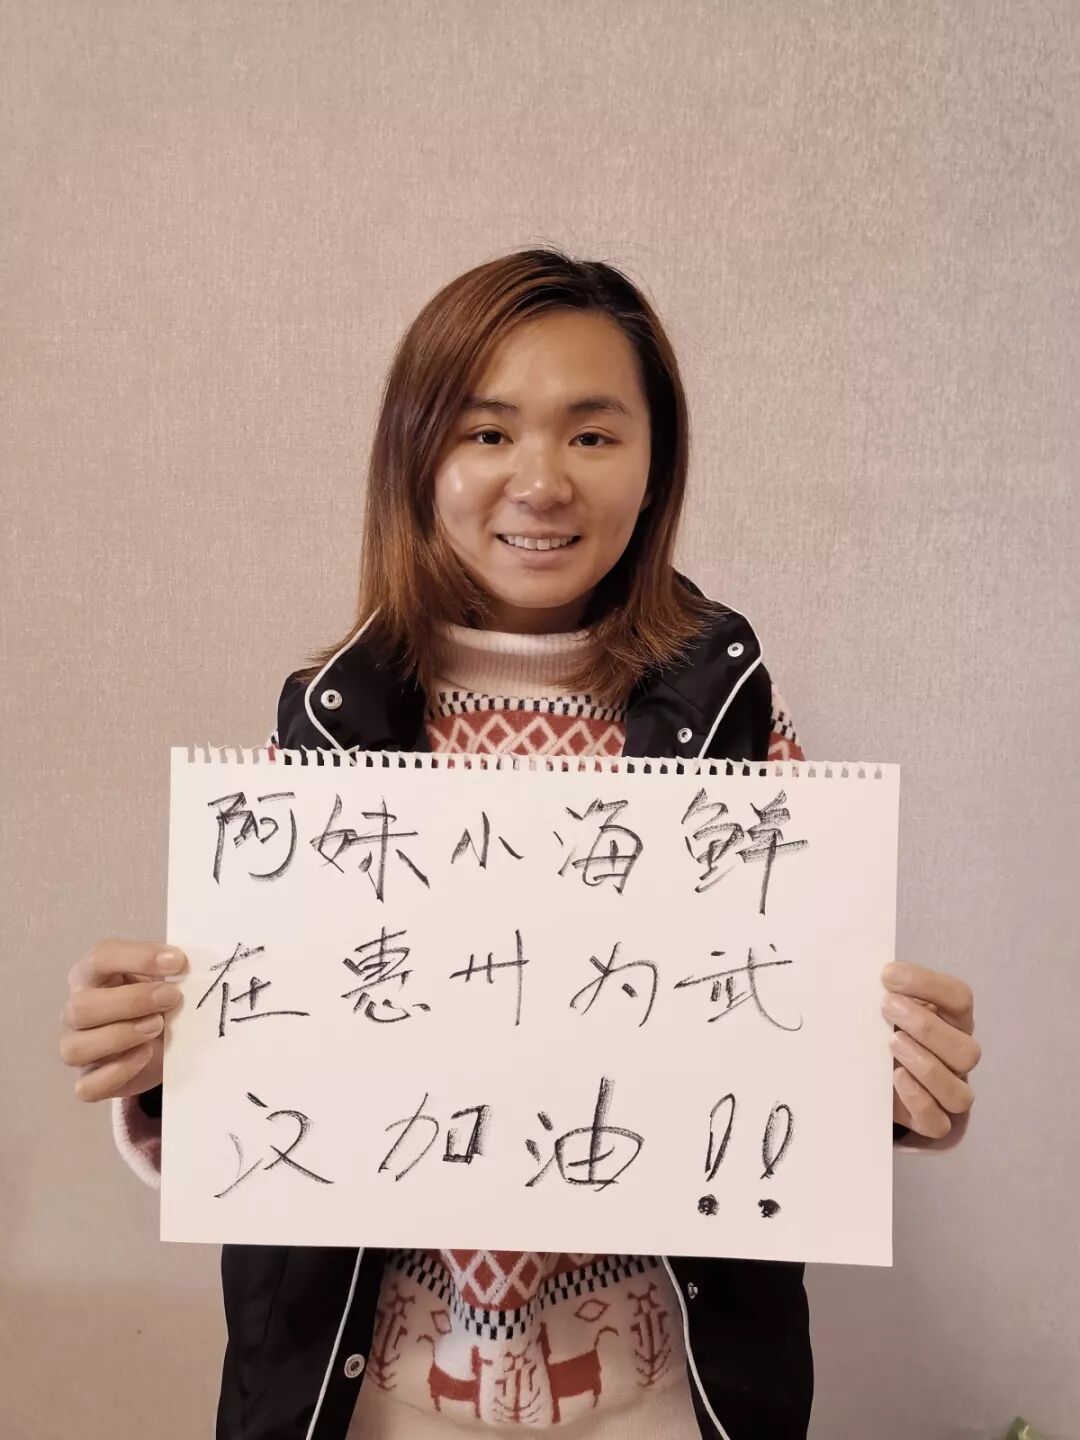 阿妹小海鲜
在惠州为武
汉加油!!